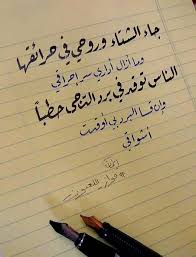 جاء الشتاء وروحي في حرائقها
وما أزال أداري سر إحراقي
الناس توقد في برد الدجى حطباً
وإن قسا البرد بي أوقدت
أشواقي